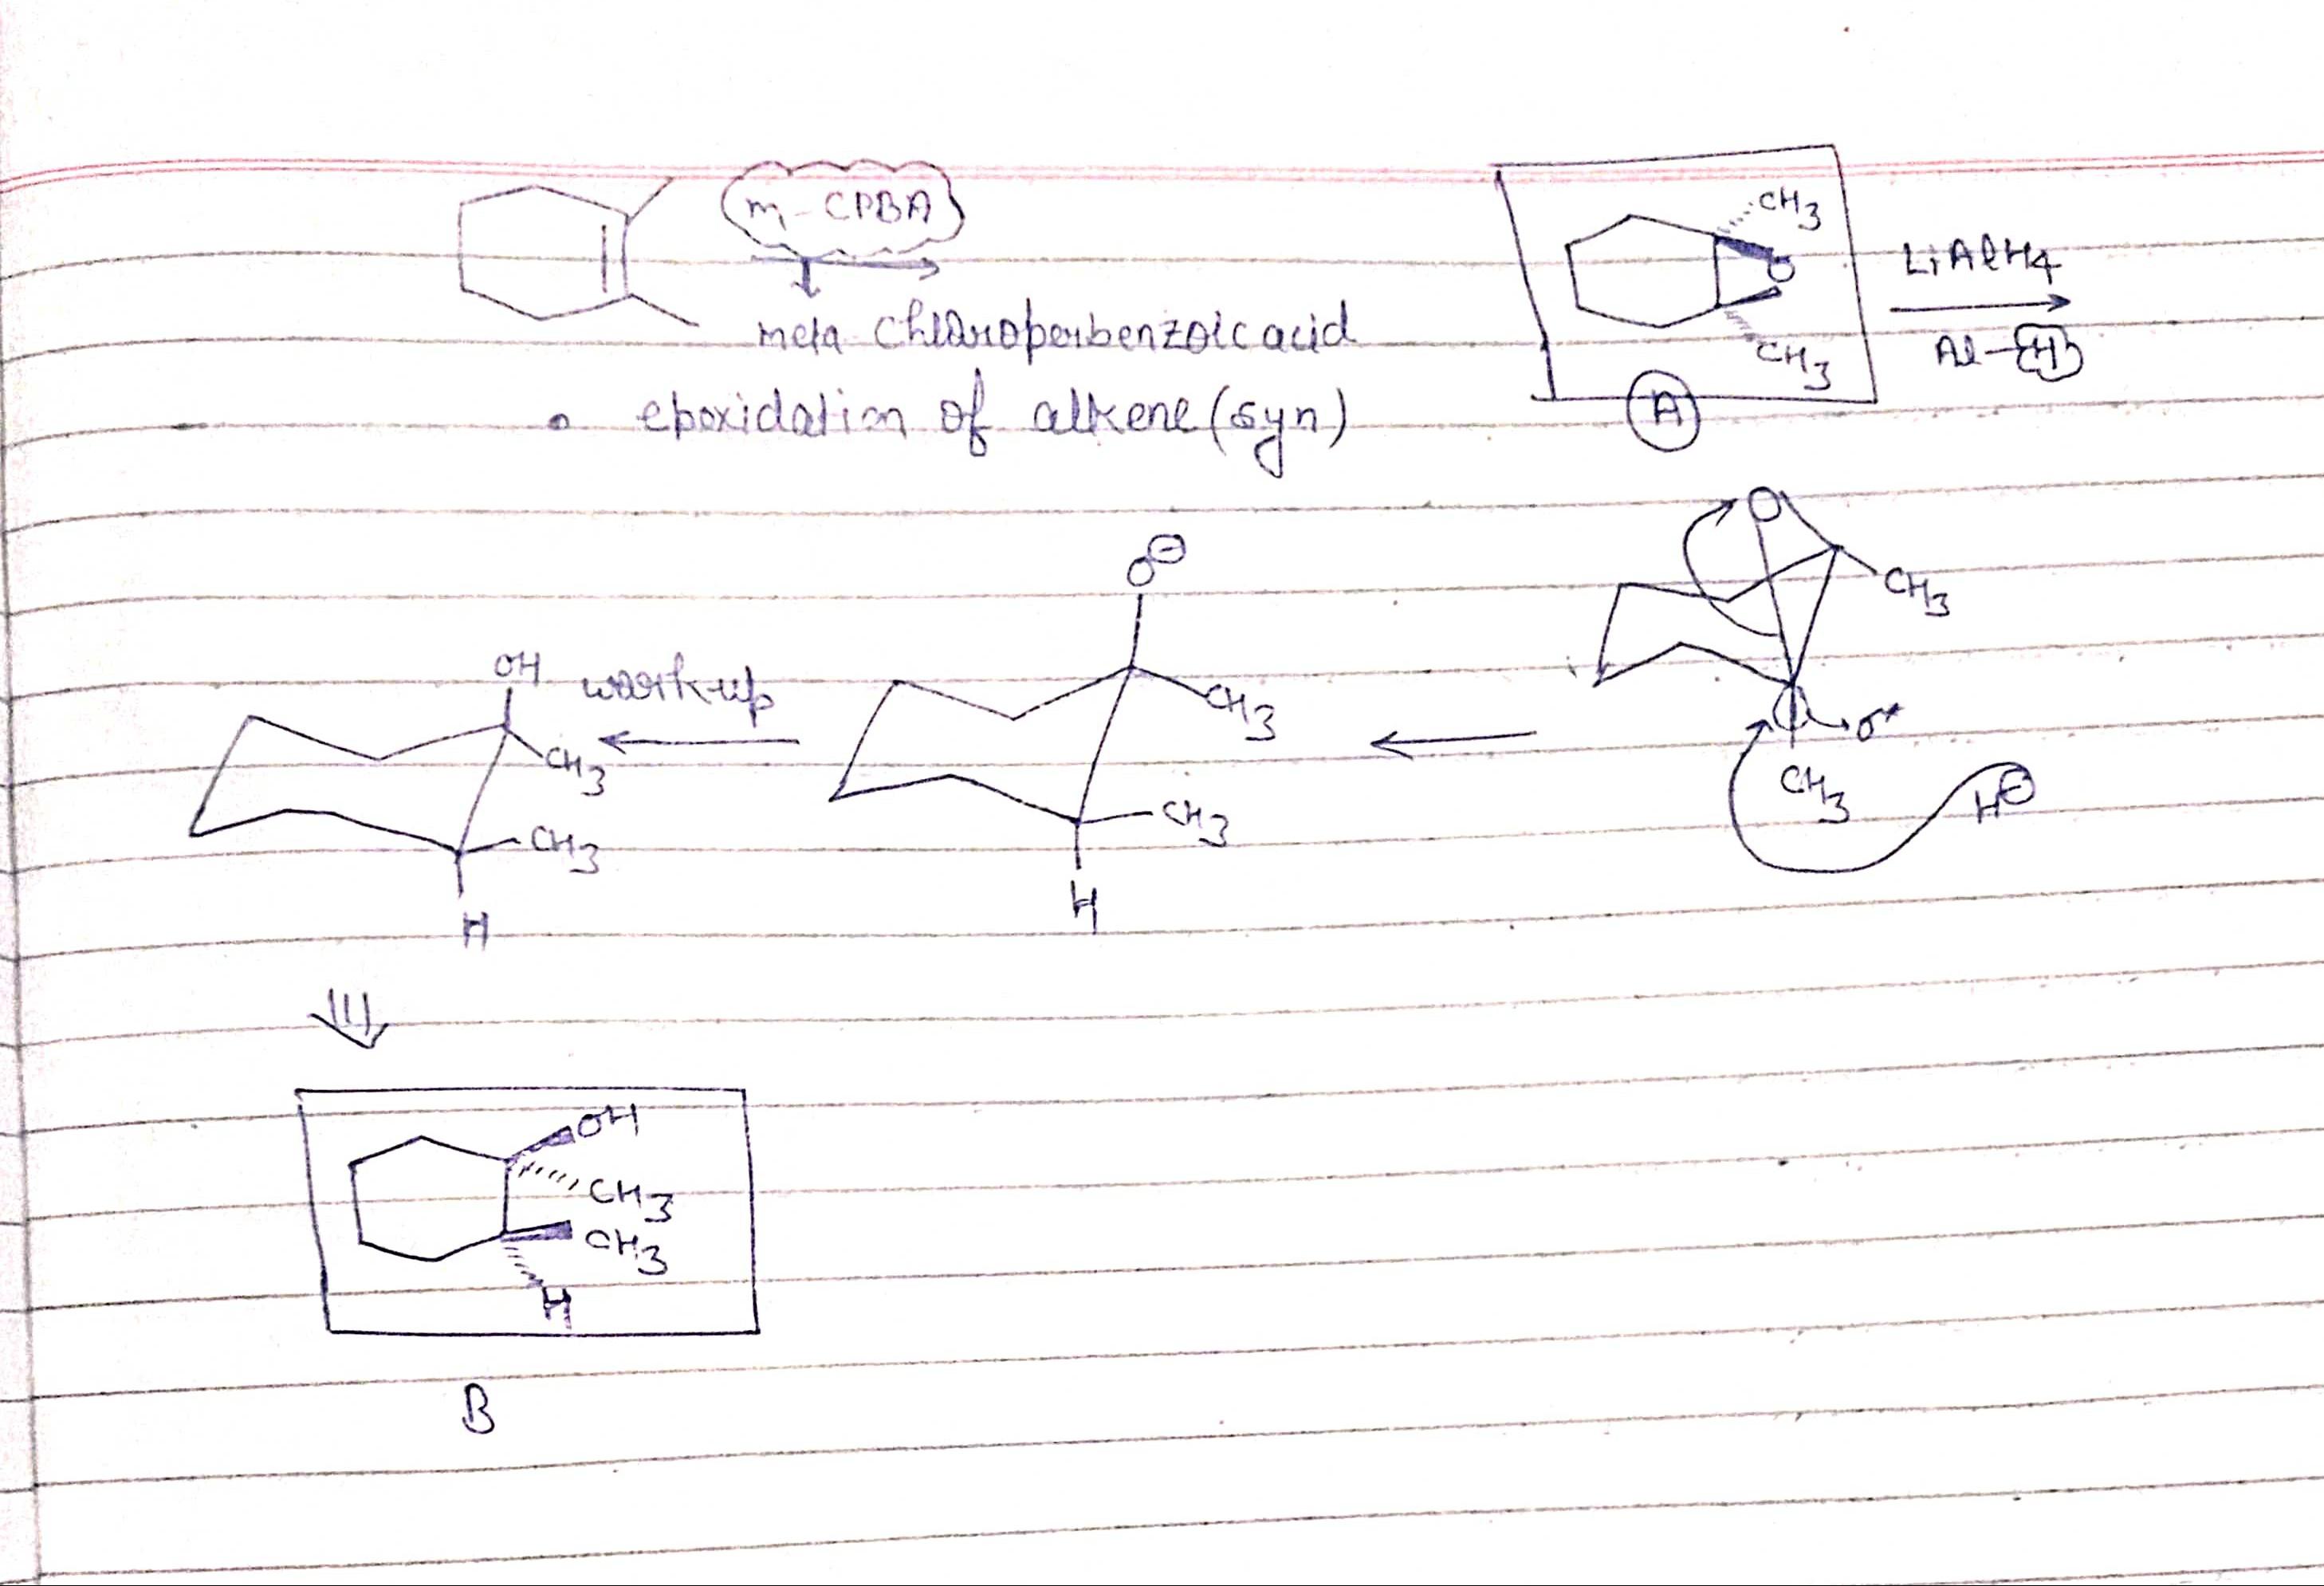 m-CPBA
meta Chloroperbenzoic acid
• epoxidation of alkene (syn)
CH3
O
CH3
A
LiAlH4
Al-H
O
CH3
σ*
CH3
H⊖
O⊖
CH3
CH3
H
work-up
OH
CH3
CH3
H
OH
CH3
CH3
H
B